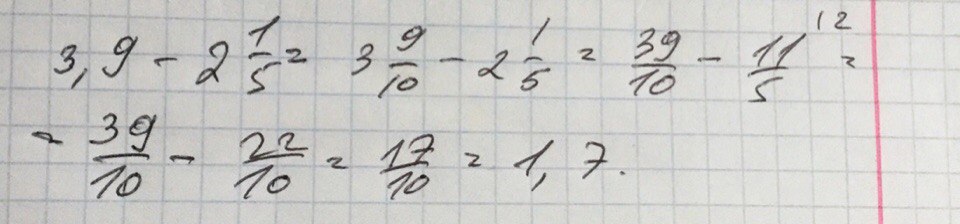 3,9 - 2 1/5 = 3 9/10 - 2 1/5 = 39/10 - 11/5 ^(12 =
= 39/10 - 22/10 = 17/10 = 1,7.